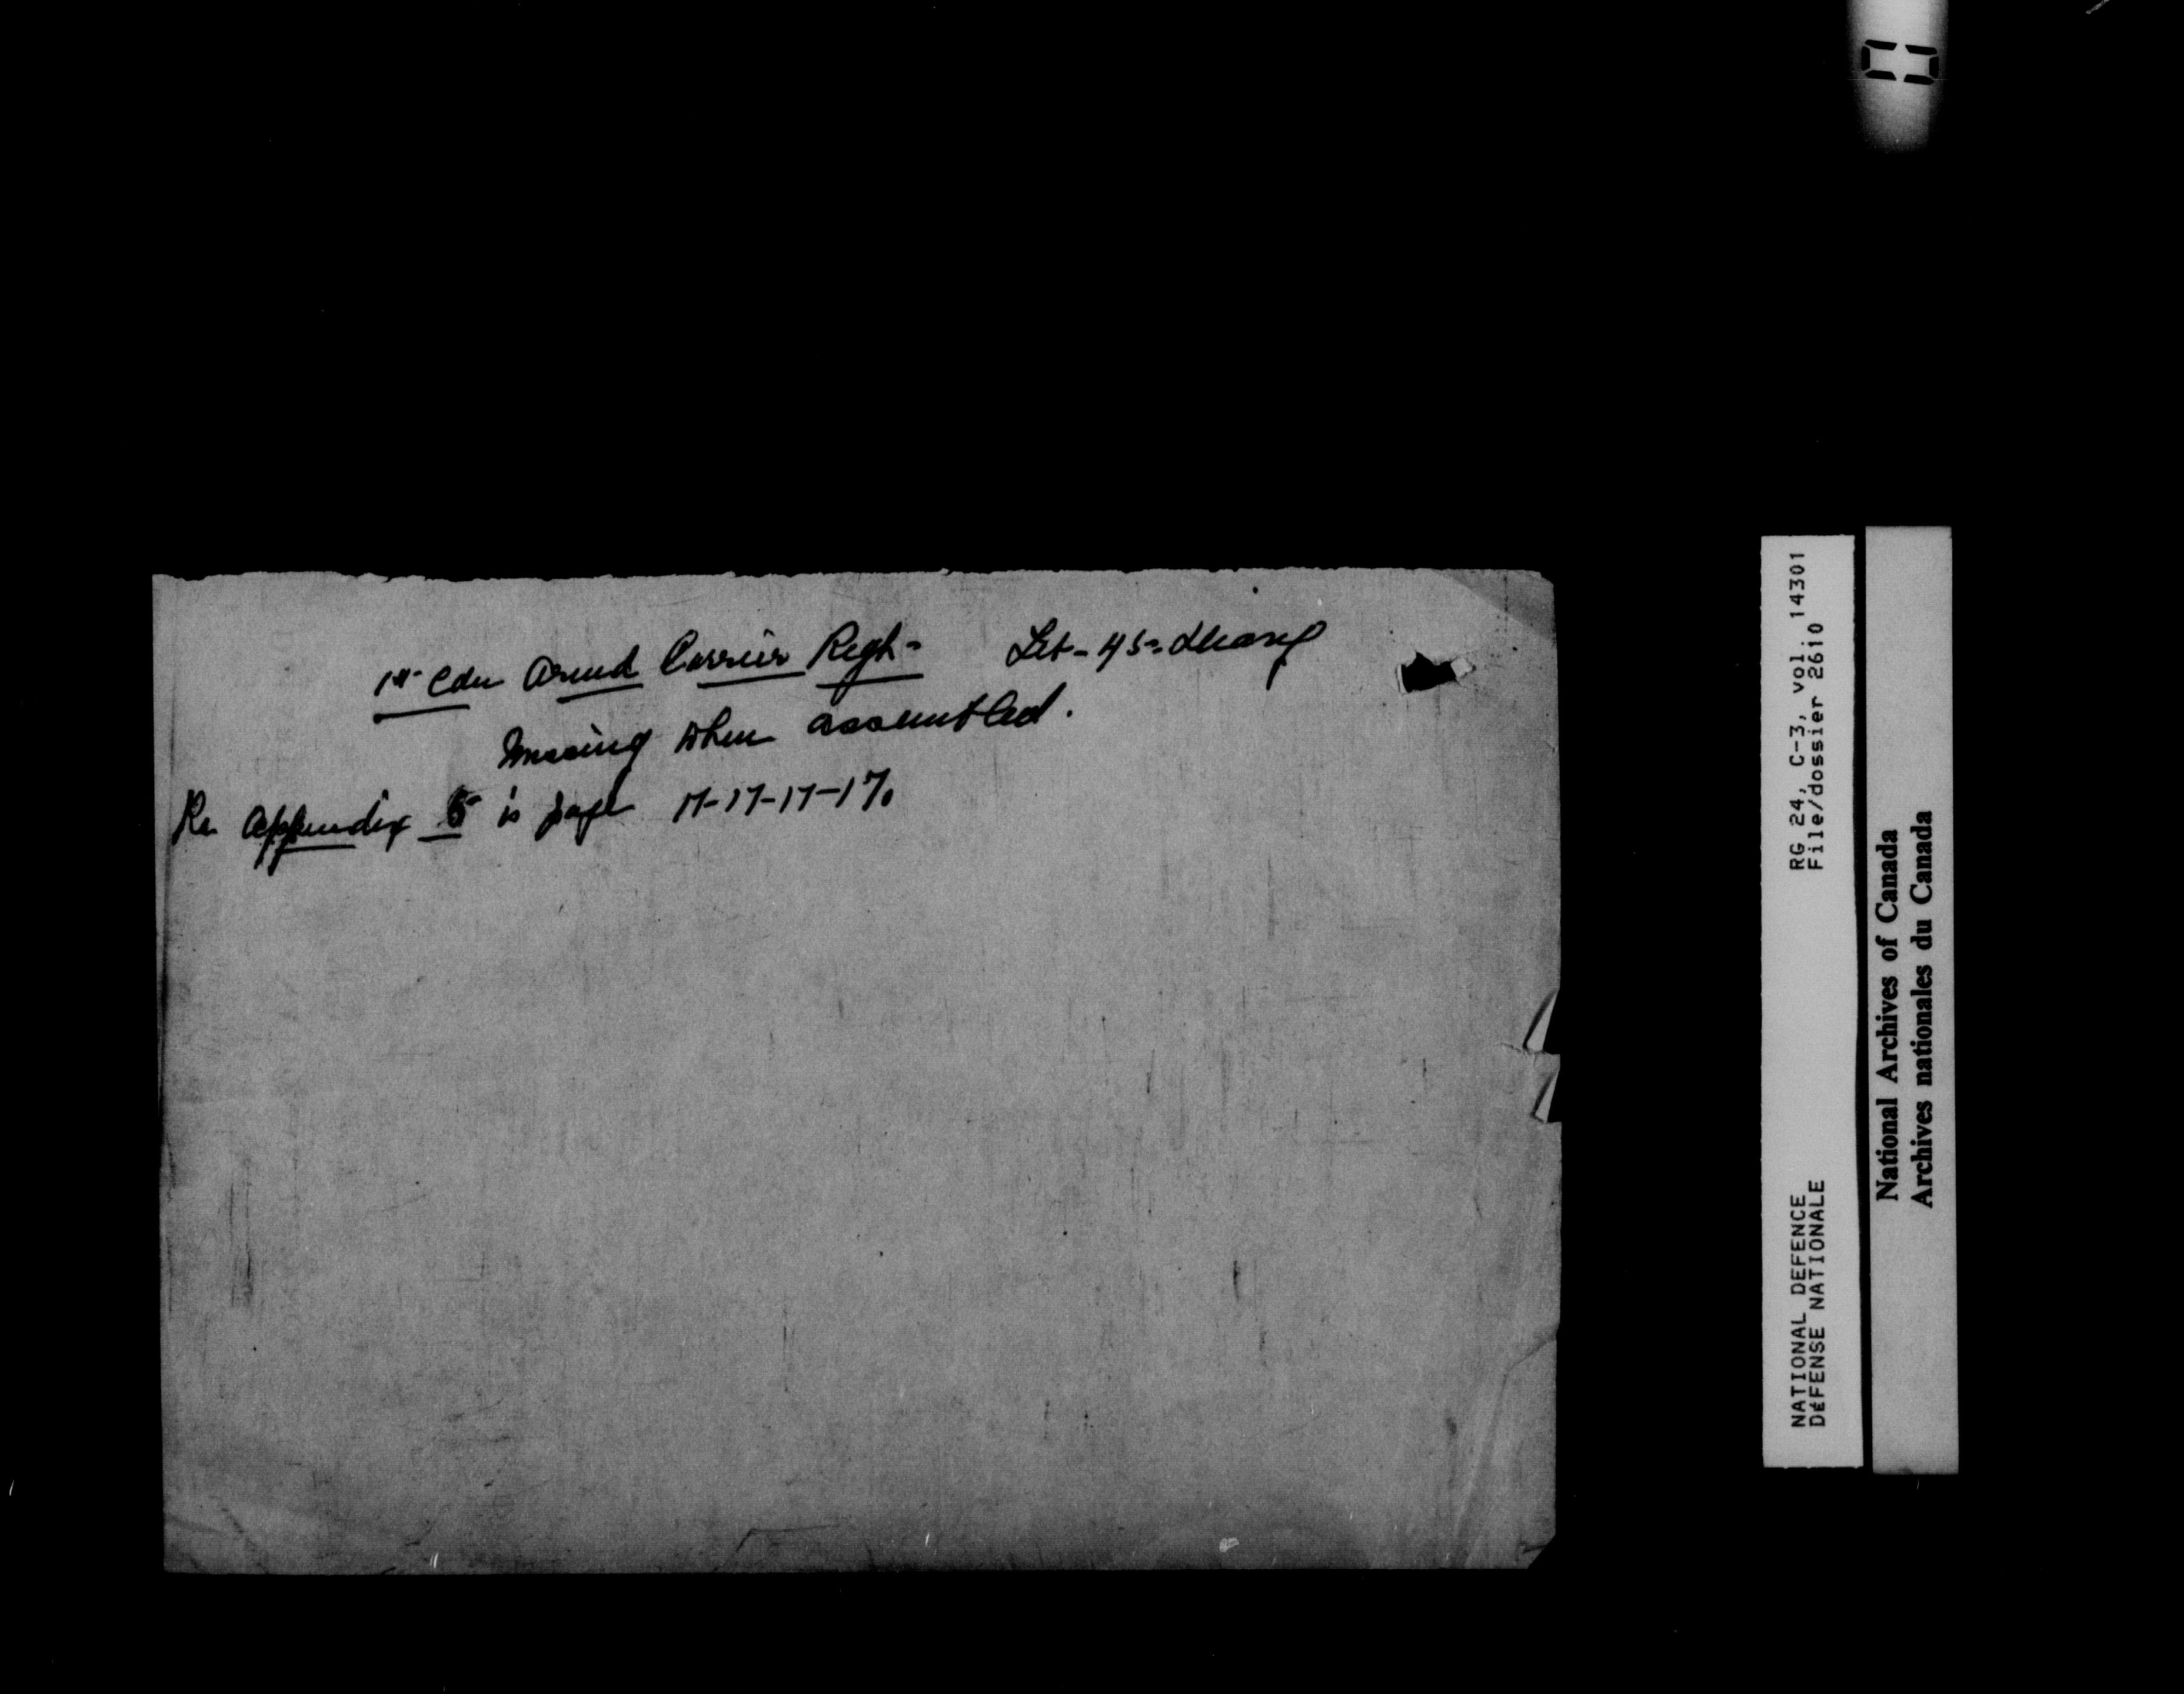 1st Cdn Armd Carrier Regt- Feb-45-
Missing when assembled.
Re Appendix 5 is page 17-17-17-17.
RG 24, C-3, vol. 14301
File/dossier 2610
NATIONAL DEFENCE
DÉFENSE NATIONALE
National Archives of Canada
Archives nationales du Canada